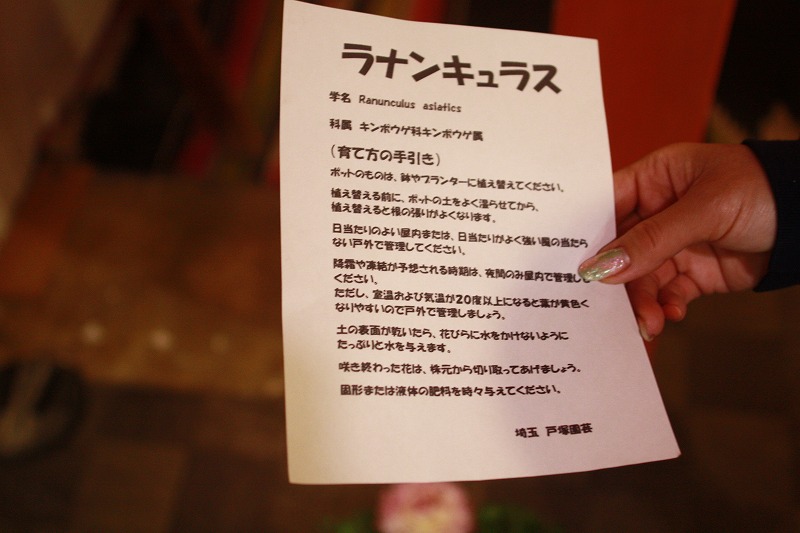 ラナンキュラス
学名 Ranunculus asiatics
科属 キンポウゲ科キンポウゲ属
(育て方の手引き)
ポットのものは、鉢やプランターに植え替えてください。
植え替える前に、ポットの土をよく湿らせてから、
植え替えると根の張りがよくなります。
日当たりのよい屋内または、日当たりがよく強い風の当たら
ない戸外で管理してください。
降霜や凍結が予想される時期は、夜間のみ屋内で管理して
ください。
ただし、室温および気温が20度以上になると葉が黄色く
なりやすいので戸外で管理しましょう。
土の表面が乾いたら、花びらに水をかけないように
たっぷりと水を与えます。
咲き終わった花は、株元から切り取ってあげましょう。
固形または液体の肥料を時々与えてください。
埼玉 戸塚園芸